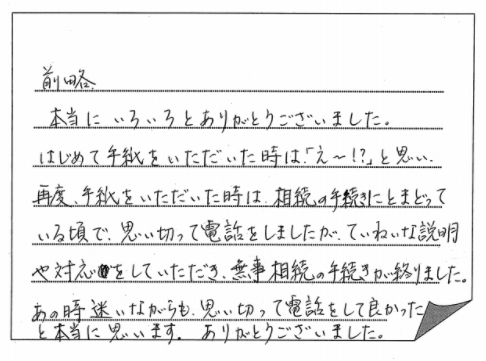 前略
本当にいろいろとありがとうございました。
はじめて手紙をいただいた時は、「え〜!?」と思い、
再度、手紙をいただいた時は、相続の手続きにとまどって
いる頃で、思い切って電話をしましたが、ていねいな説明
や対応をしていただき、無事相続の手続きが終りました。
あの時迷いながらも、思い切って電話をして良かった
と本当に思います。ありがとうございました。